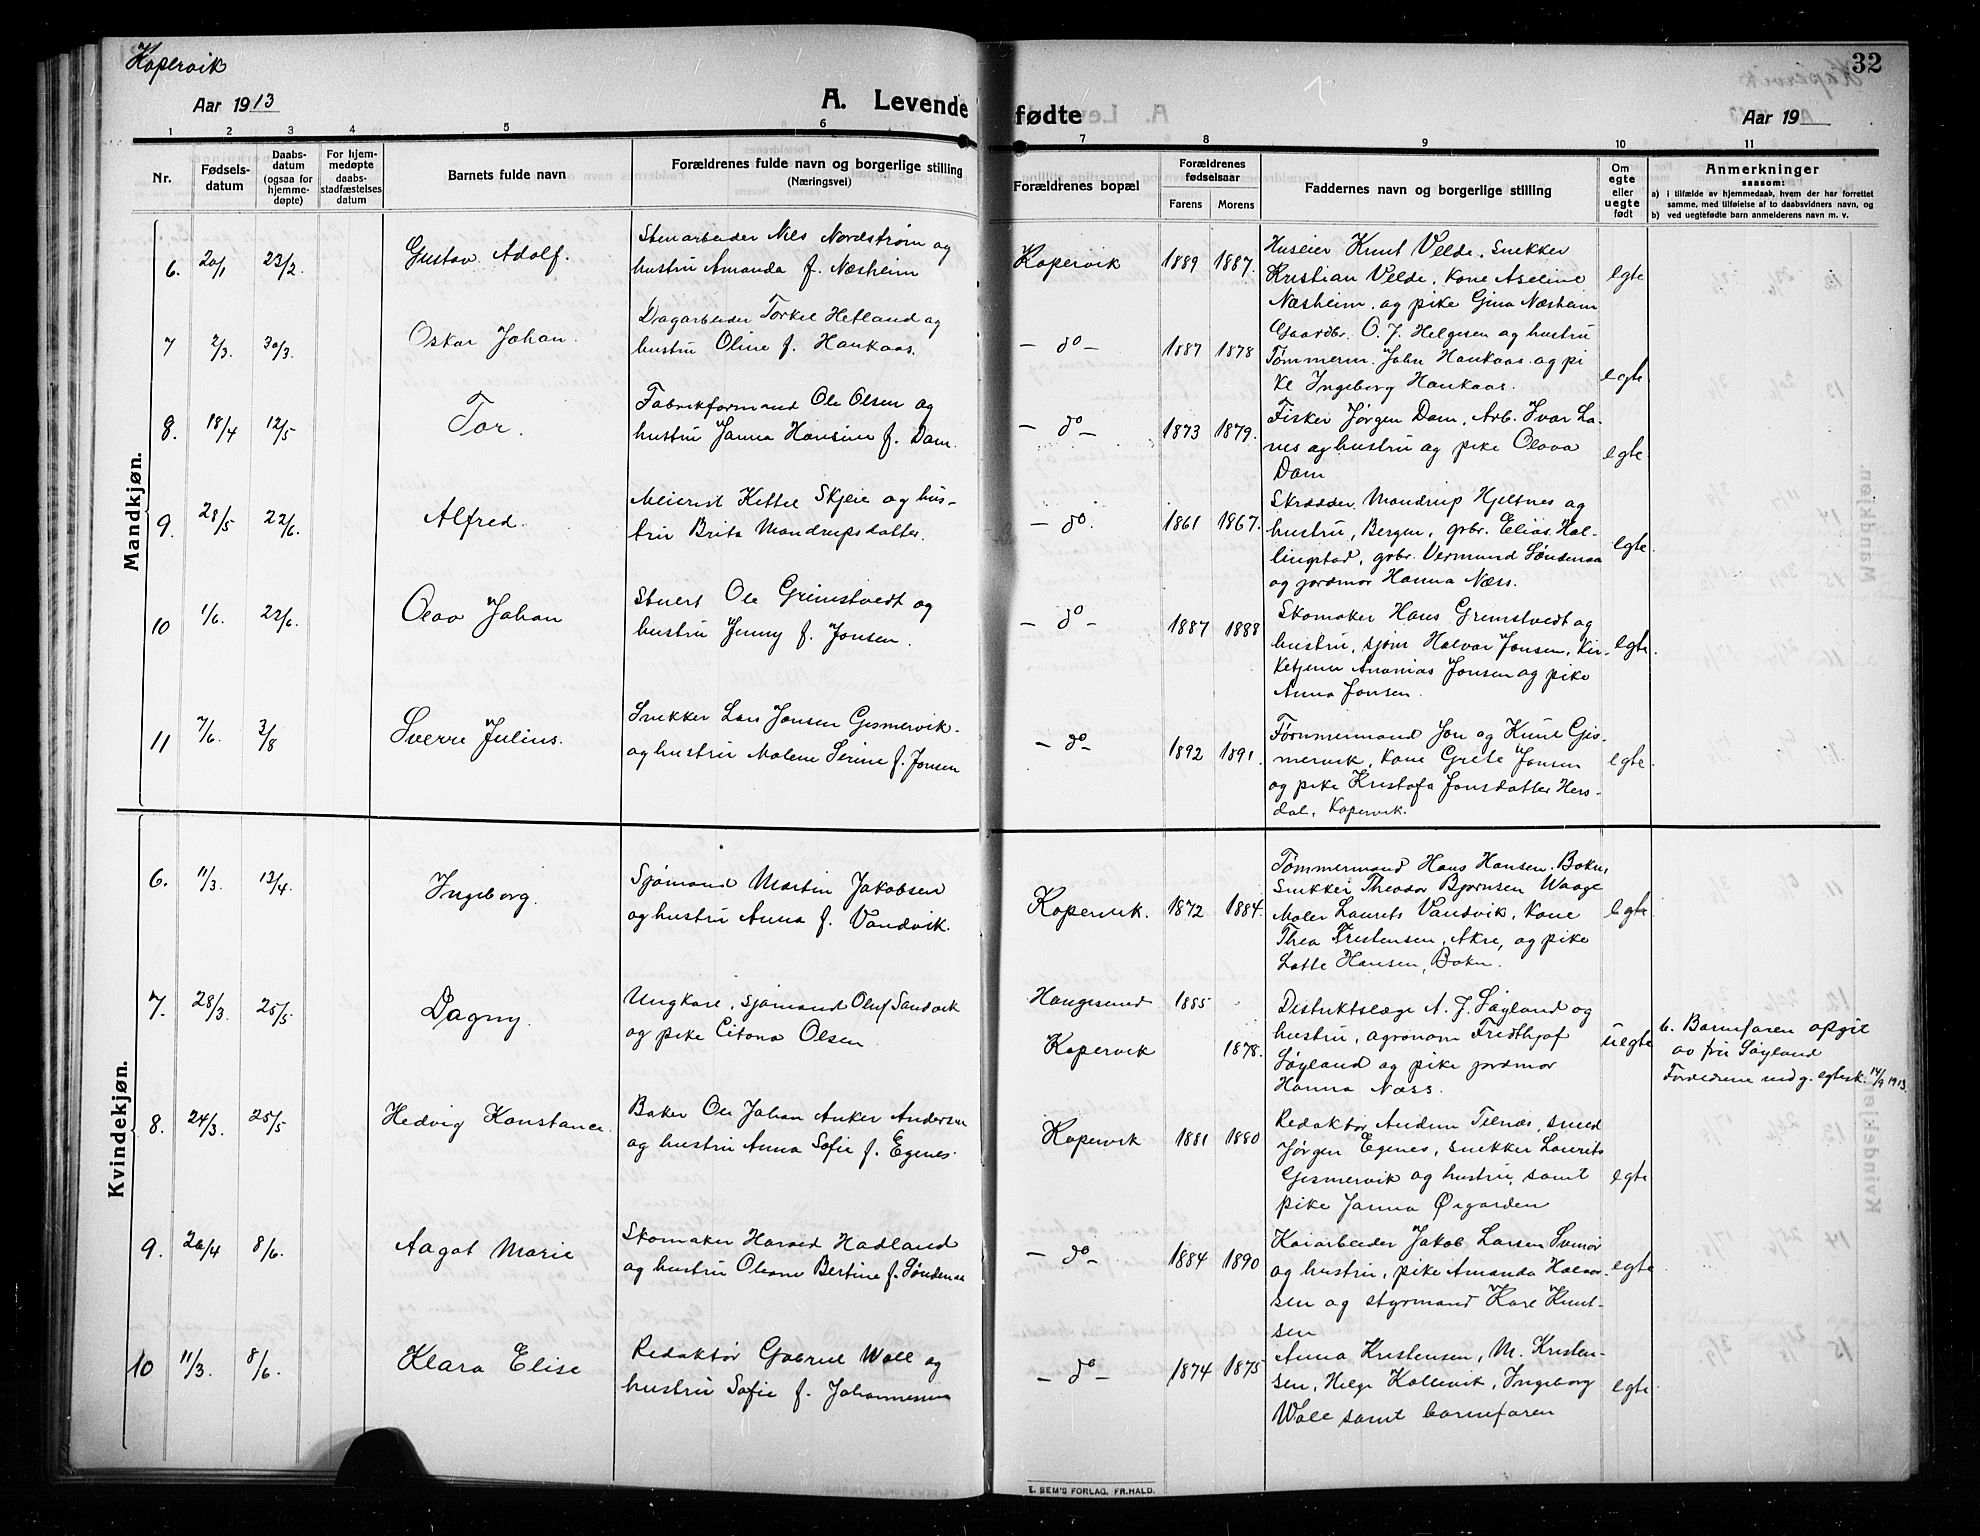 Kopervik
Aar 1913
A. Levende
fødte
Aar 19
32
1 2 3 4 5 6 7 8 9 10 11
Nr.
Fødsels-
datum
Daabs-
datum
(ogsaa for
hjemme-
døpte)
For hjem-
medøpte
daabs-
stadfæstelses
datum
Barnets fulde navn
Forældrenes fulde navn og borgerlige stilling
(Næringsvei)
Forældrenes bopæl
Forældrenes
fødselsaar
Farens Morens
Faddernes navn og borgerlige stilling
Om
egte
eller
uegte
født
Anmerkninger
saasom:
a) i tilfælde av hjemmedaab, hvem der har forrettet
samme, med tilføielse af to daabsvidners navn, og
b) ved uegtefødte barn anmelderens navn m. v.
Mandkjøn.
6. 20/1 23/2. Gustav Adolf.
Stenarbeider Nils Nordstrøm og
hustru Amanda f. Næsheim
Kopervik 1889 1887.
Huseier Knut Velde, snekker
Kristian Velde, kone Aseline
Næsheim, og pike Gina Næsheim
egte
7 2/3. 30/3. Oskar Johan.
Dagarbeider Torkel Hetland og
hustru Oline f. Haukaas.
– do – 1887 1878
Gaardbr. O. J. Helgesen og hustru
Tømmerm. John Haukaas og pi
ke Ingeborg Haukaas.
egte
8. 18/4 12/5 Tor.
Fabrikformand Ole Olsen og
hustru Janna Hansine f. Dam.
– do – 1873 1879.
Fisker Jørgen Dam, Arb. Ivar La-
nes og hustru og pike Olava
Dam
egte
9. 28/5 22/6. Alfred.
Meierist Kettel Skjeie og hus-
tru Brita Mandrupsdatter.
– do. 1861 1867.
Skrædder Mandrup Hjeltnes og
hustru, Bergen, grbr. Elias Hal-
lingstad, grbr. Vermund Søndenaa
og jordmor Hanna Næss.
egte.
10 1/6. 22/6. Olav Johan
Stuert Ole Grimstvedt og
hustru Jenny f. Jonsen.
– do – 1887 1888
Skomaker Hans Grimstvedt og
hustru, sjøm Halvar Jonsen, Kir-
ketjener Ananias Jonsen og pike
Anna Jonsen.
egte.
11 7/6. 3/8 Sverre Julius.
Snekker Lars Jonsen Gismervik
og hustru Malene Serine f. Jonsen
– do – 1892 1891.
Tømmermand Jon og Knut Gis-
mervik, kone Grete Jonsen
og pike Kristofa Jonsdatter Hers-
dal, Kopervik.
egte
Kvindekjøn.
6. 11/3. 13/4. Ingeborg.
Sjømand Martin Jakobsen
og hustru Anna f. Vandvik.
Kopervik. 1872 1884.
Tømmermand Hans Hansen, Bokn,
Snekker Theodor Bjørnsen Waage
Maler Laurits Vandvik, kone
Thea Kristensen, Akre, og pike
Lotte Hansen, Bokn.
egte
7. 28/3. 25/5 Dagny.
Ungkare, sjømand Oluf Sandvik
og pike Citona Olsen
Haugesund 1885
Kopervik 1878.
Distriktslæge A. J. Søyland og
hustru, agronom Fredthjof
Søyland og pike jordmor
Hanna Næss.
uegte
b. Barnefaren opgit
av fru Søyland
Forældrene med g. egtesk. 14/9 1913
8. 24/3. 25/5 Hedvig Konstance.
Baker Ole Johan Anker Andersen
og hustru Anna Sofie f. Egenes.
Kopervik 1881 1880
Redaktør Andem Tilnæs, smed
Jørgen Egenes, snekker Laurits
Gismervik og hustru, samt
pike Janna Øigarden
egte
9. 26/4 8/6. Aagot Marie
Skomaker Harald Hadland
og hustru Oleane Bertine f. Søndenaa
– do – 1884 1890
Kaiarbeider Jakob Larsen Svinør
og hustru, pike Amanda Halvor-
sen og styrmand Kare Knut-
sen
egte
10 11/3. 8/6. Klara Elise
Redaktør Gabriel Wall og
hustru Sofie f. Johannessen
– do – 1874 1875
Anna Kristensen, M. Kristen-
sen, Helge Kallevik, Ingeborg
Wall samt barnefaren
egte
E. SEM'S FORLAG, FR.HALD.